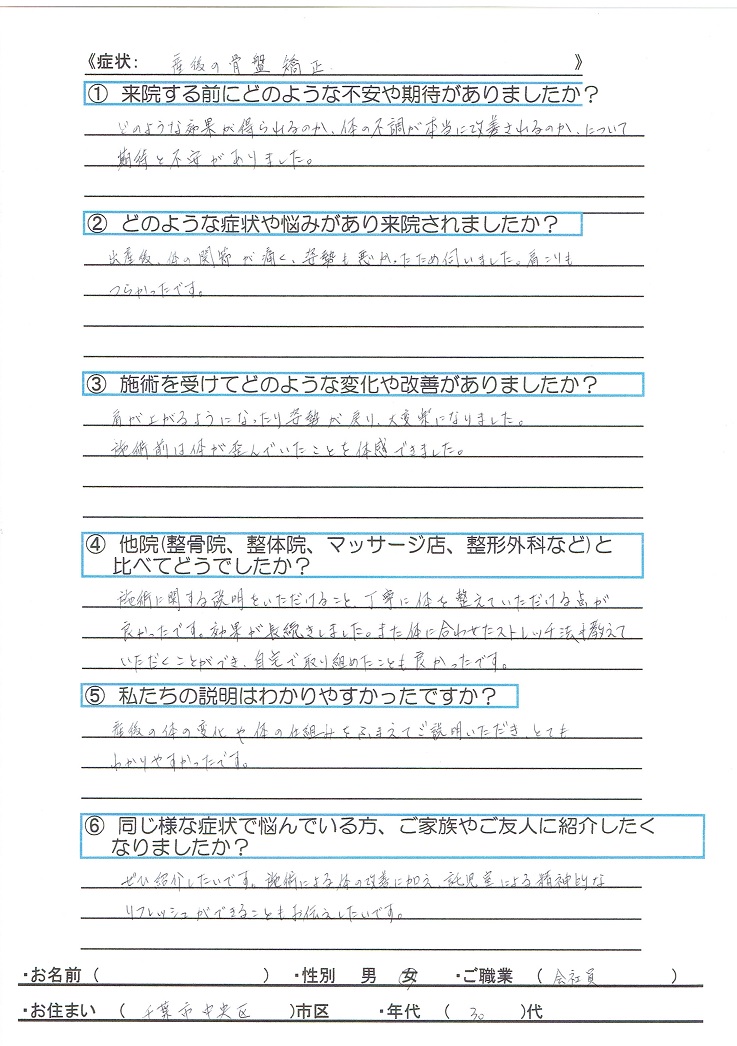 《症状: 産後の骨盤矯正 》
① 来院する前にどのような不安や期待がありましたか？
どのような効果が得られるのか、体の不調が本当に改善されるのか、について
期待と不安がありました。
② どのような症状や悩みがあり来院されましたか？
出産後、体の関節が痛く、姿勢も悪かったため伺いました。肩こりも
つらかったです。
③ 施術を受けてどのような変化や改善がありましたか？
肩が上がるようになったり姿勢が戻り、大変楽になりました。
施術前は体が歪んでいたことを体感できました。
④ 他院(整骨院、整体院、マッサージ店、整形外科など)と
比べてどうでしたか？
施術に関する説明をいただけること、丁寧に体を整えていただける点が
良かったです。効果が長続きしました。また体に合わせたストレッチ法も教えて
いただくことができ、自宅で取り組めたことも良かったです。
⑤ 私たちの説明はわかりやすかったですか？
産後の体の変化や体の仕組みをふまえてご説明いただき、とても
わかりやすかったです。
⑥ 同じ様な症状で悩んでいる方、ご家族やご友人に紹介したく
なりましたか？
ぜひ紹介したいです。施術による体の改善に加え、託児室による精神的な
リフレッシュができることもお伝えしたいです。
・お名前 ( ) ・性別 男 女 ・ご職業 ( 会社員 )
・お住まい ( 千葉市中央区 )市区 ・年代 ( 30 )代